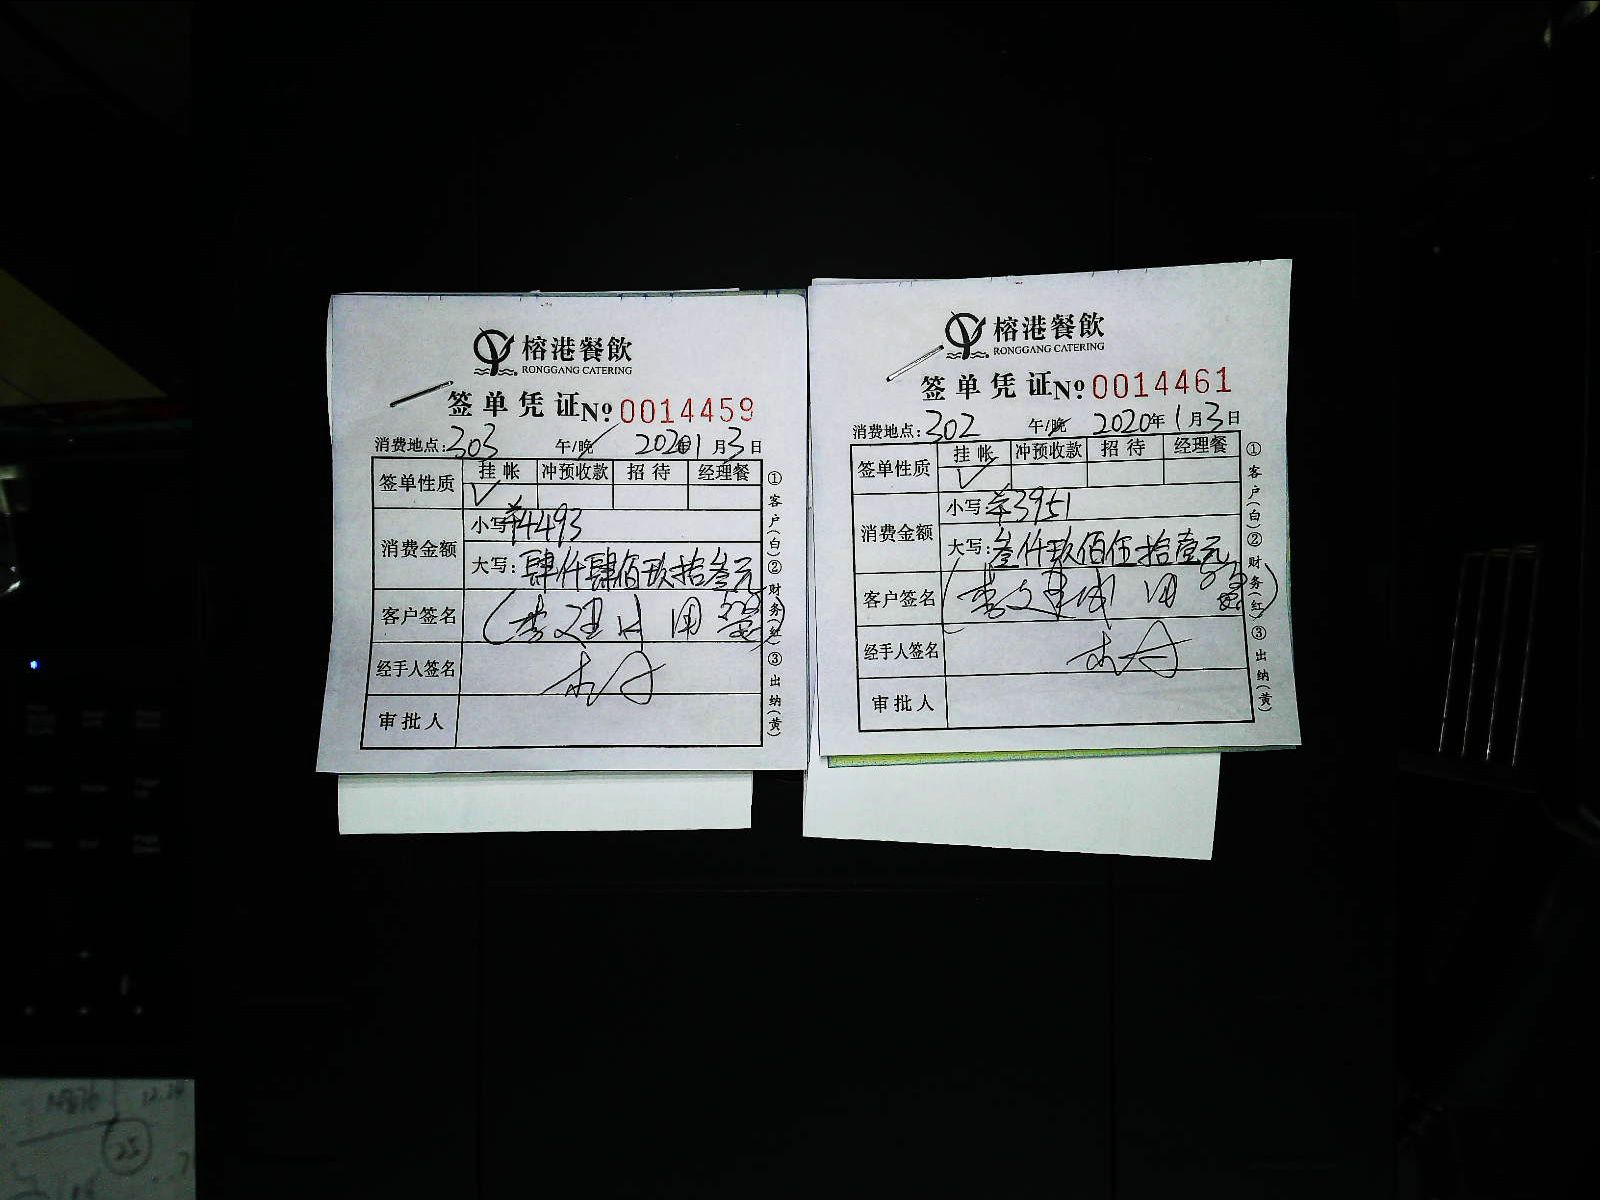 榕港餐飲
RONGGANG CATERING
签单凭证№ 0014459
消费地点:303 午/晚 2020年1月3日
签单性质 挂帐 冲预收款 招待 经理餐
✓
消费金额 小写 ¥4493
大写: 肆仟肆佰玖拾叁元
客户签名
经手人签名
审批人
①客户(白)②财务(红)③出纳(黄)
榕港餐飲
RONGGANG CATERING
签单凭证№ 0014461
消费地点:302 午/晚 2020年1月3日
签单性质 挂帐 冲预收款 招待 经理餐
✓
消费金额 小写 ¥3951
大写: 叁仟玖佰伍拾壹元
客户签名
经手人签名
审批人
①客户(白)②财务(红)③出纳(黄)
25